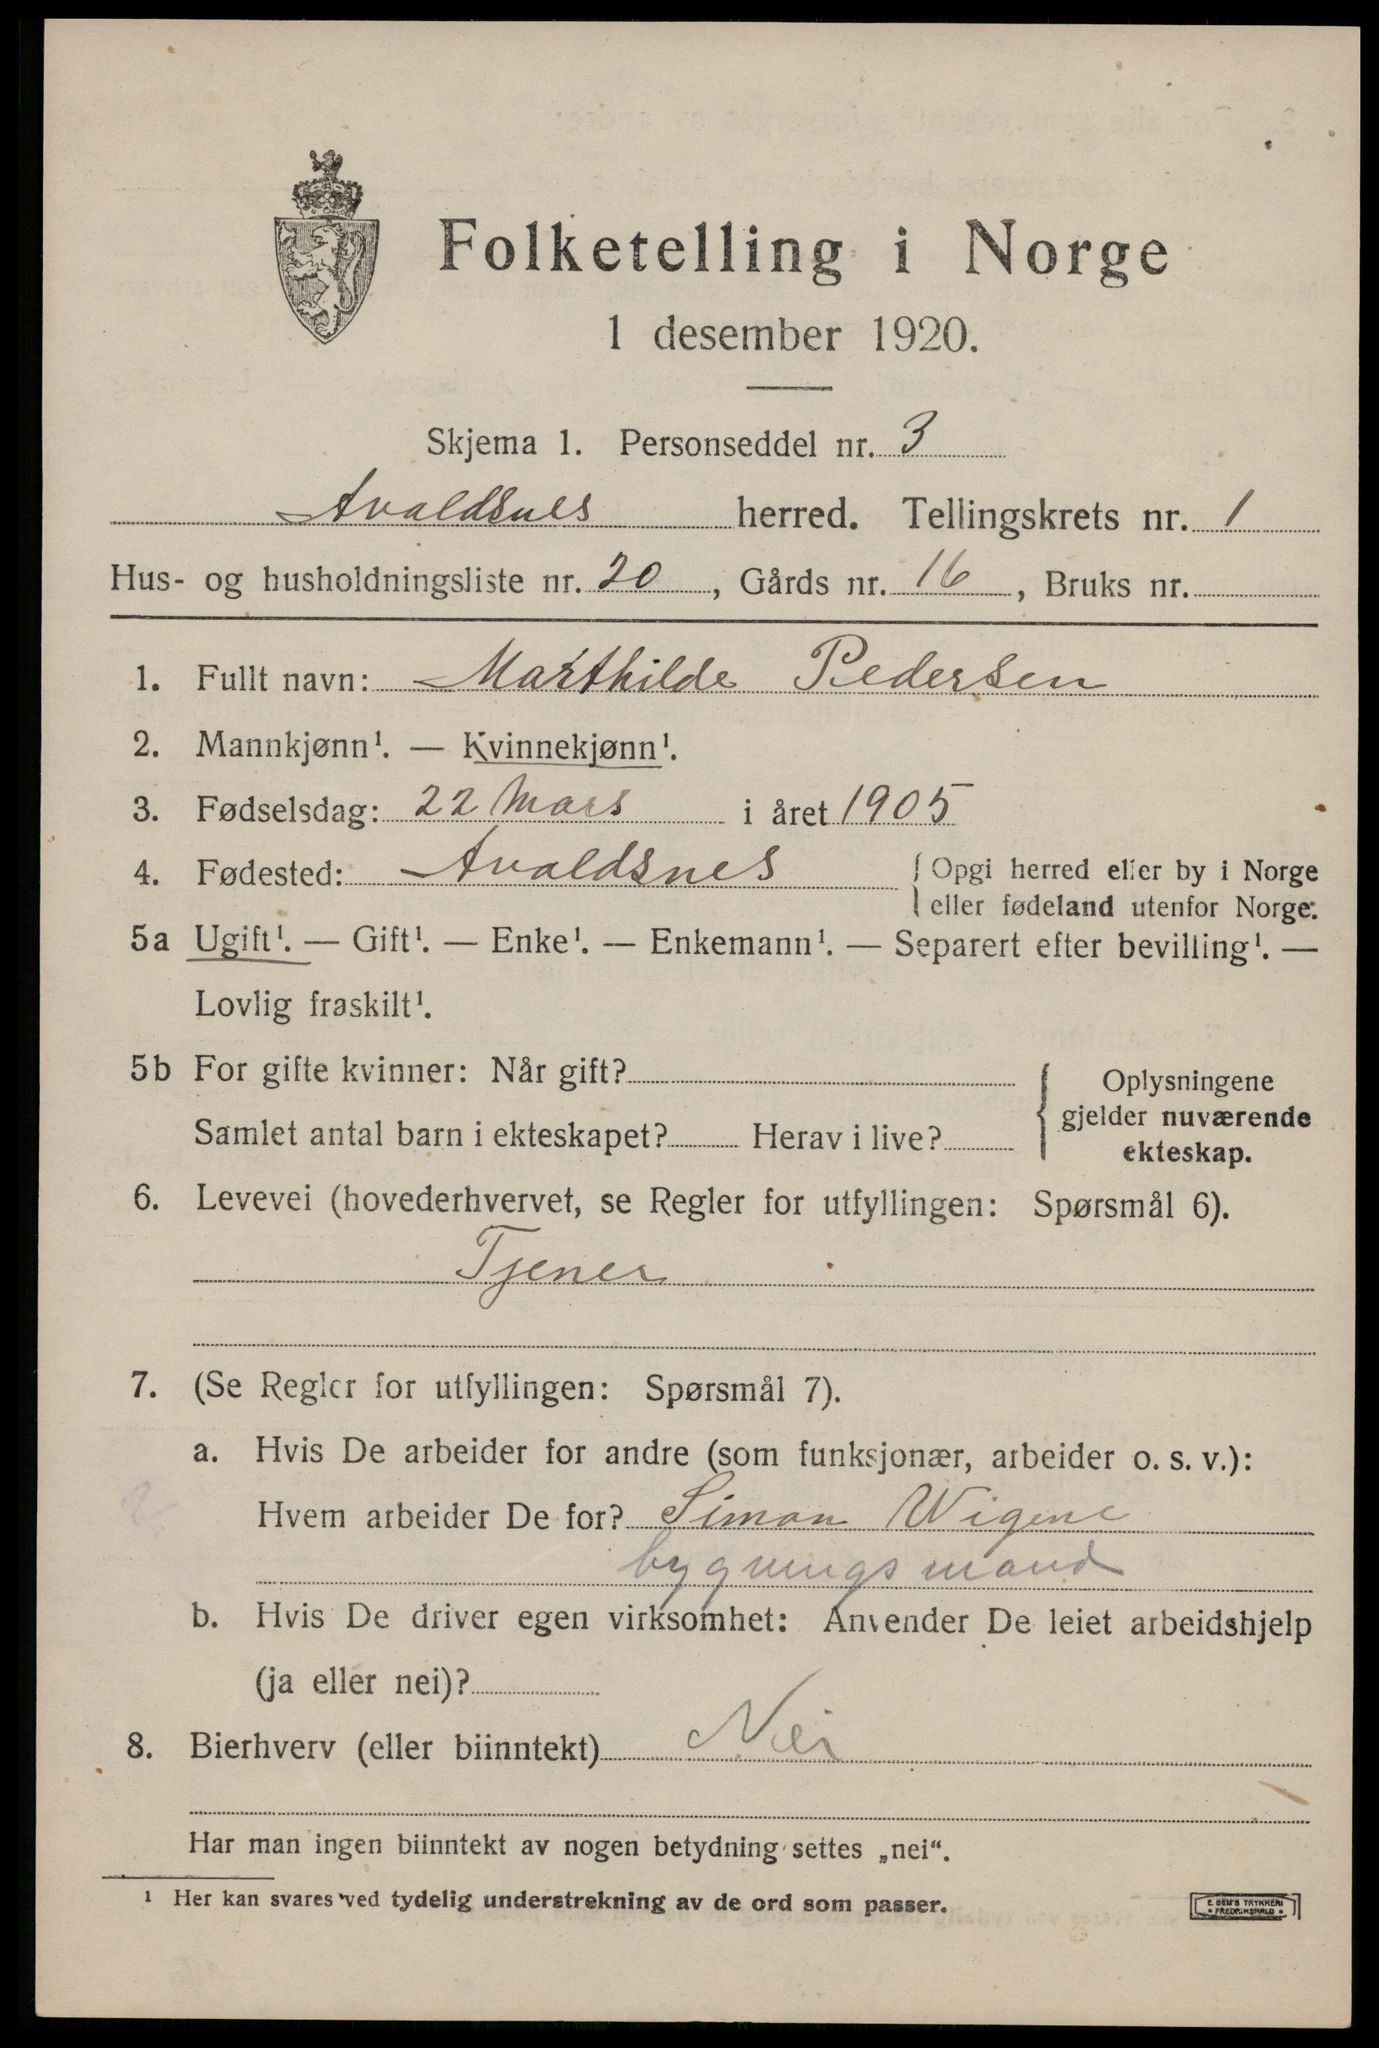 Folketelling i Norge
1 desember 1920.
Skjema 1. Personseddel nr. 3
Avaldsnes herred. Tellingskrets nr. 1
Hus- og husholdningsliste nr. 20, Gårds nr. 16, Bruks nr.
1. Fullt navn: Marthilde Pedersen
2. Mannkjønn¹. — Kvinnekjønn¹.
3. Fødselsdag: 22 Mars i året 1905
4. Fødested: Avaldsnes { Opgi herred eller by i Norge
eller fødeland utenfor Norge.
5a Ugift¹. — Gift¹. — Enke¹. — Enkemann¹. — Separert efter bevilling¹. —
Lovlig fraskilt¹.
5b For gifte kvinner: Når gift? { Oplysningene
gjelder nuværende
Samlet antal barn i ekteskapet? Herav i live?
ekteskap.
6. Levevei (hovederhvervet, se Regler for utfyllingen: Spørsmål 6).
Tjener
7. (Se Regler for utfyllingen: Spørsmål 7).
a. Hvis De arbeider for andre (som funksjonær, arbeider o. s. v.):
Hvem arbeider De for? Simon Wigene
bygningsmand
b. Hvis De driver egen virksomhet: Anvender De leiet arbeidshjelp
(ja eller nei)?
8. Bierhverv (eller biinntekt) Nei
Har man ingen biinntekt av nogen betydning settes „nei“.
¹ Her kan svares ved tydelig understrekning av de ord som passer.
E. SEM'S TRYKKERI
FREDRIKSHALD